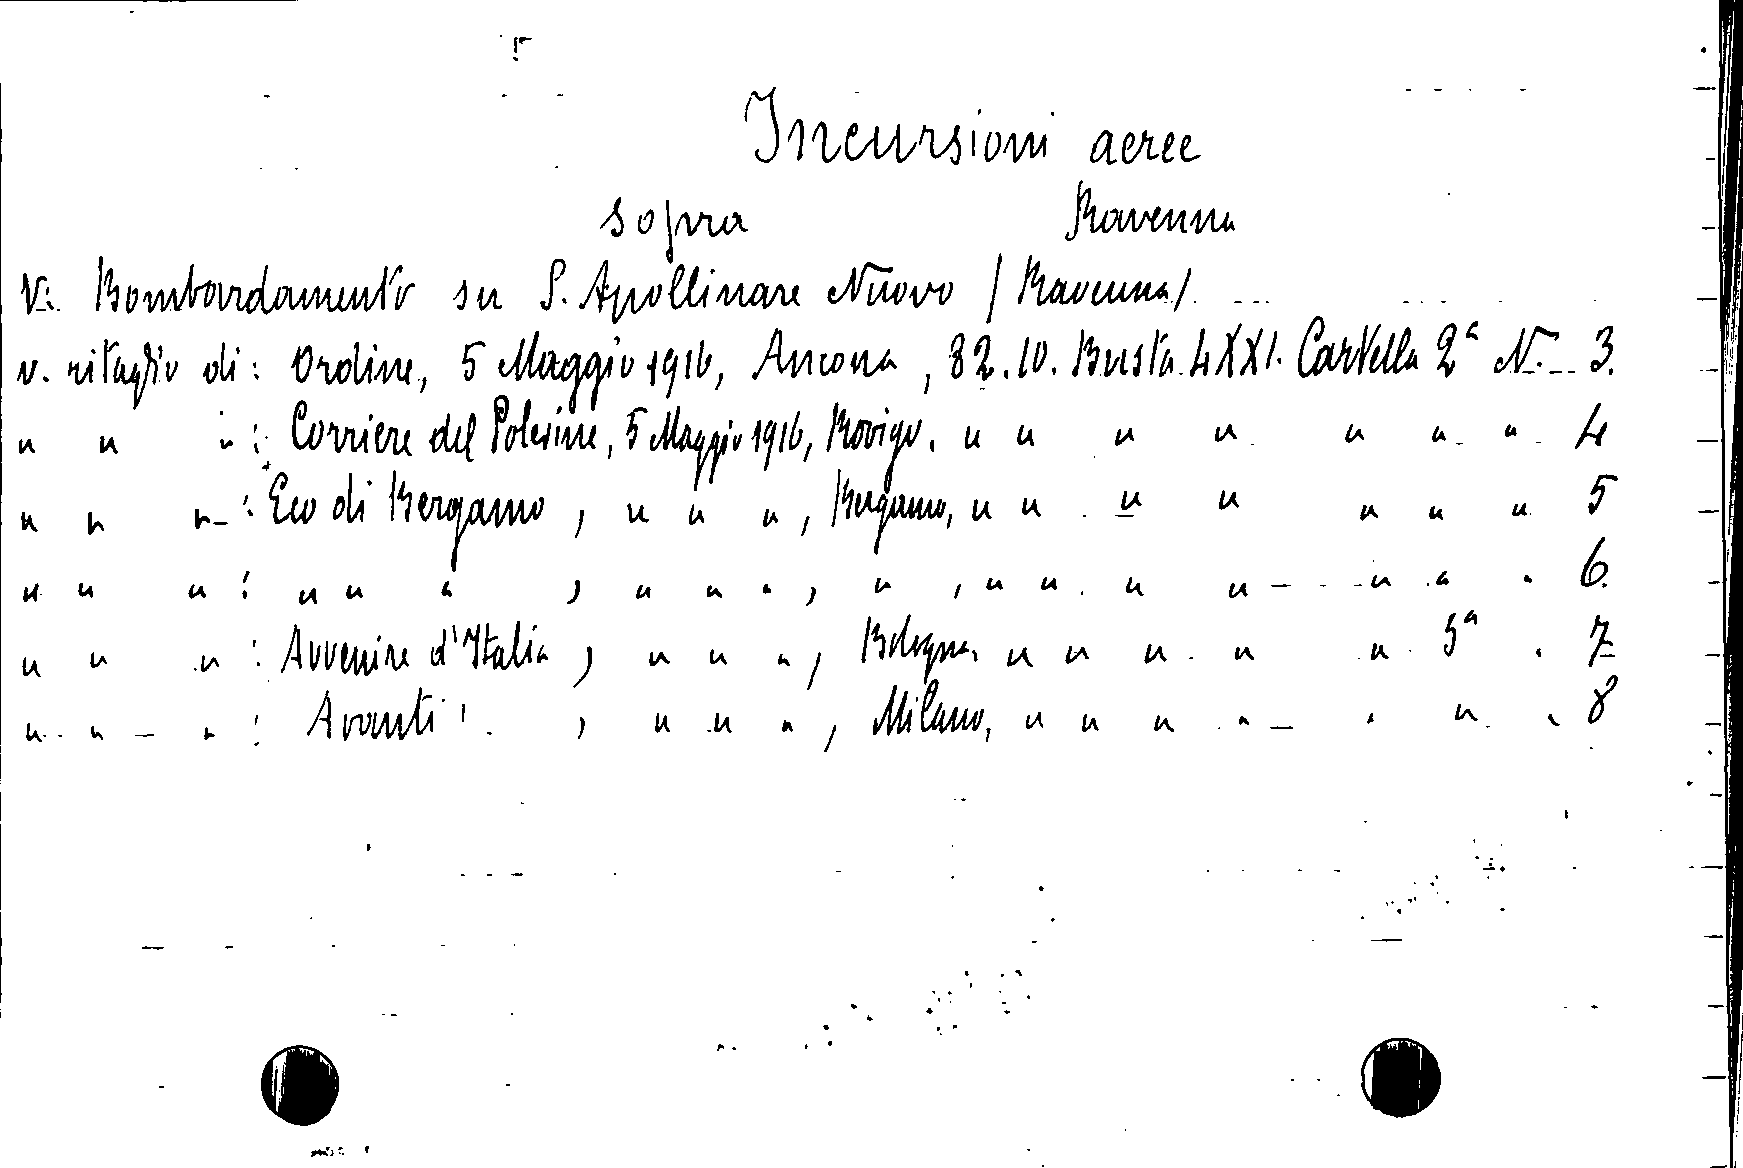 Incursioni aeree
sopra Ravenna
V: Bombardamento su S. Apollinare Nuovo / Ravenna /
v. ritaglio di: Ordine, 5 Maggio 1916, Ancona, 82.10. Busta LXXI. Cartella 2ª N. 3.
" " " : Corriere del Polesine, 5 Maggio 1916, Rovigo. " " " " " " " 4
" " " : Eco di Bergamo, " " " , Bergamo, " " " " " " " 5
" " " : " " " , " " " , " , " " " " " " " 6.
" " " : Avvenire d'Italia, " " " , Bologna. " " " " " 3ª " 7
" " " : Avanti! , " " " , Milano, " " " " " " " 8